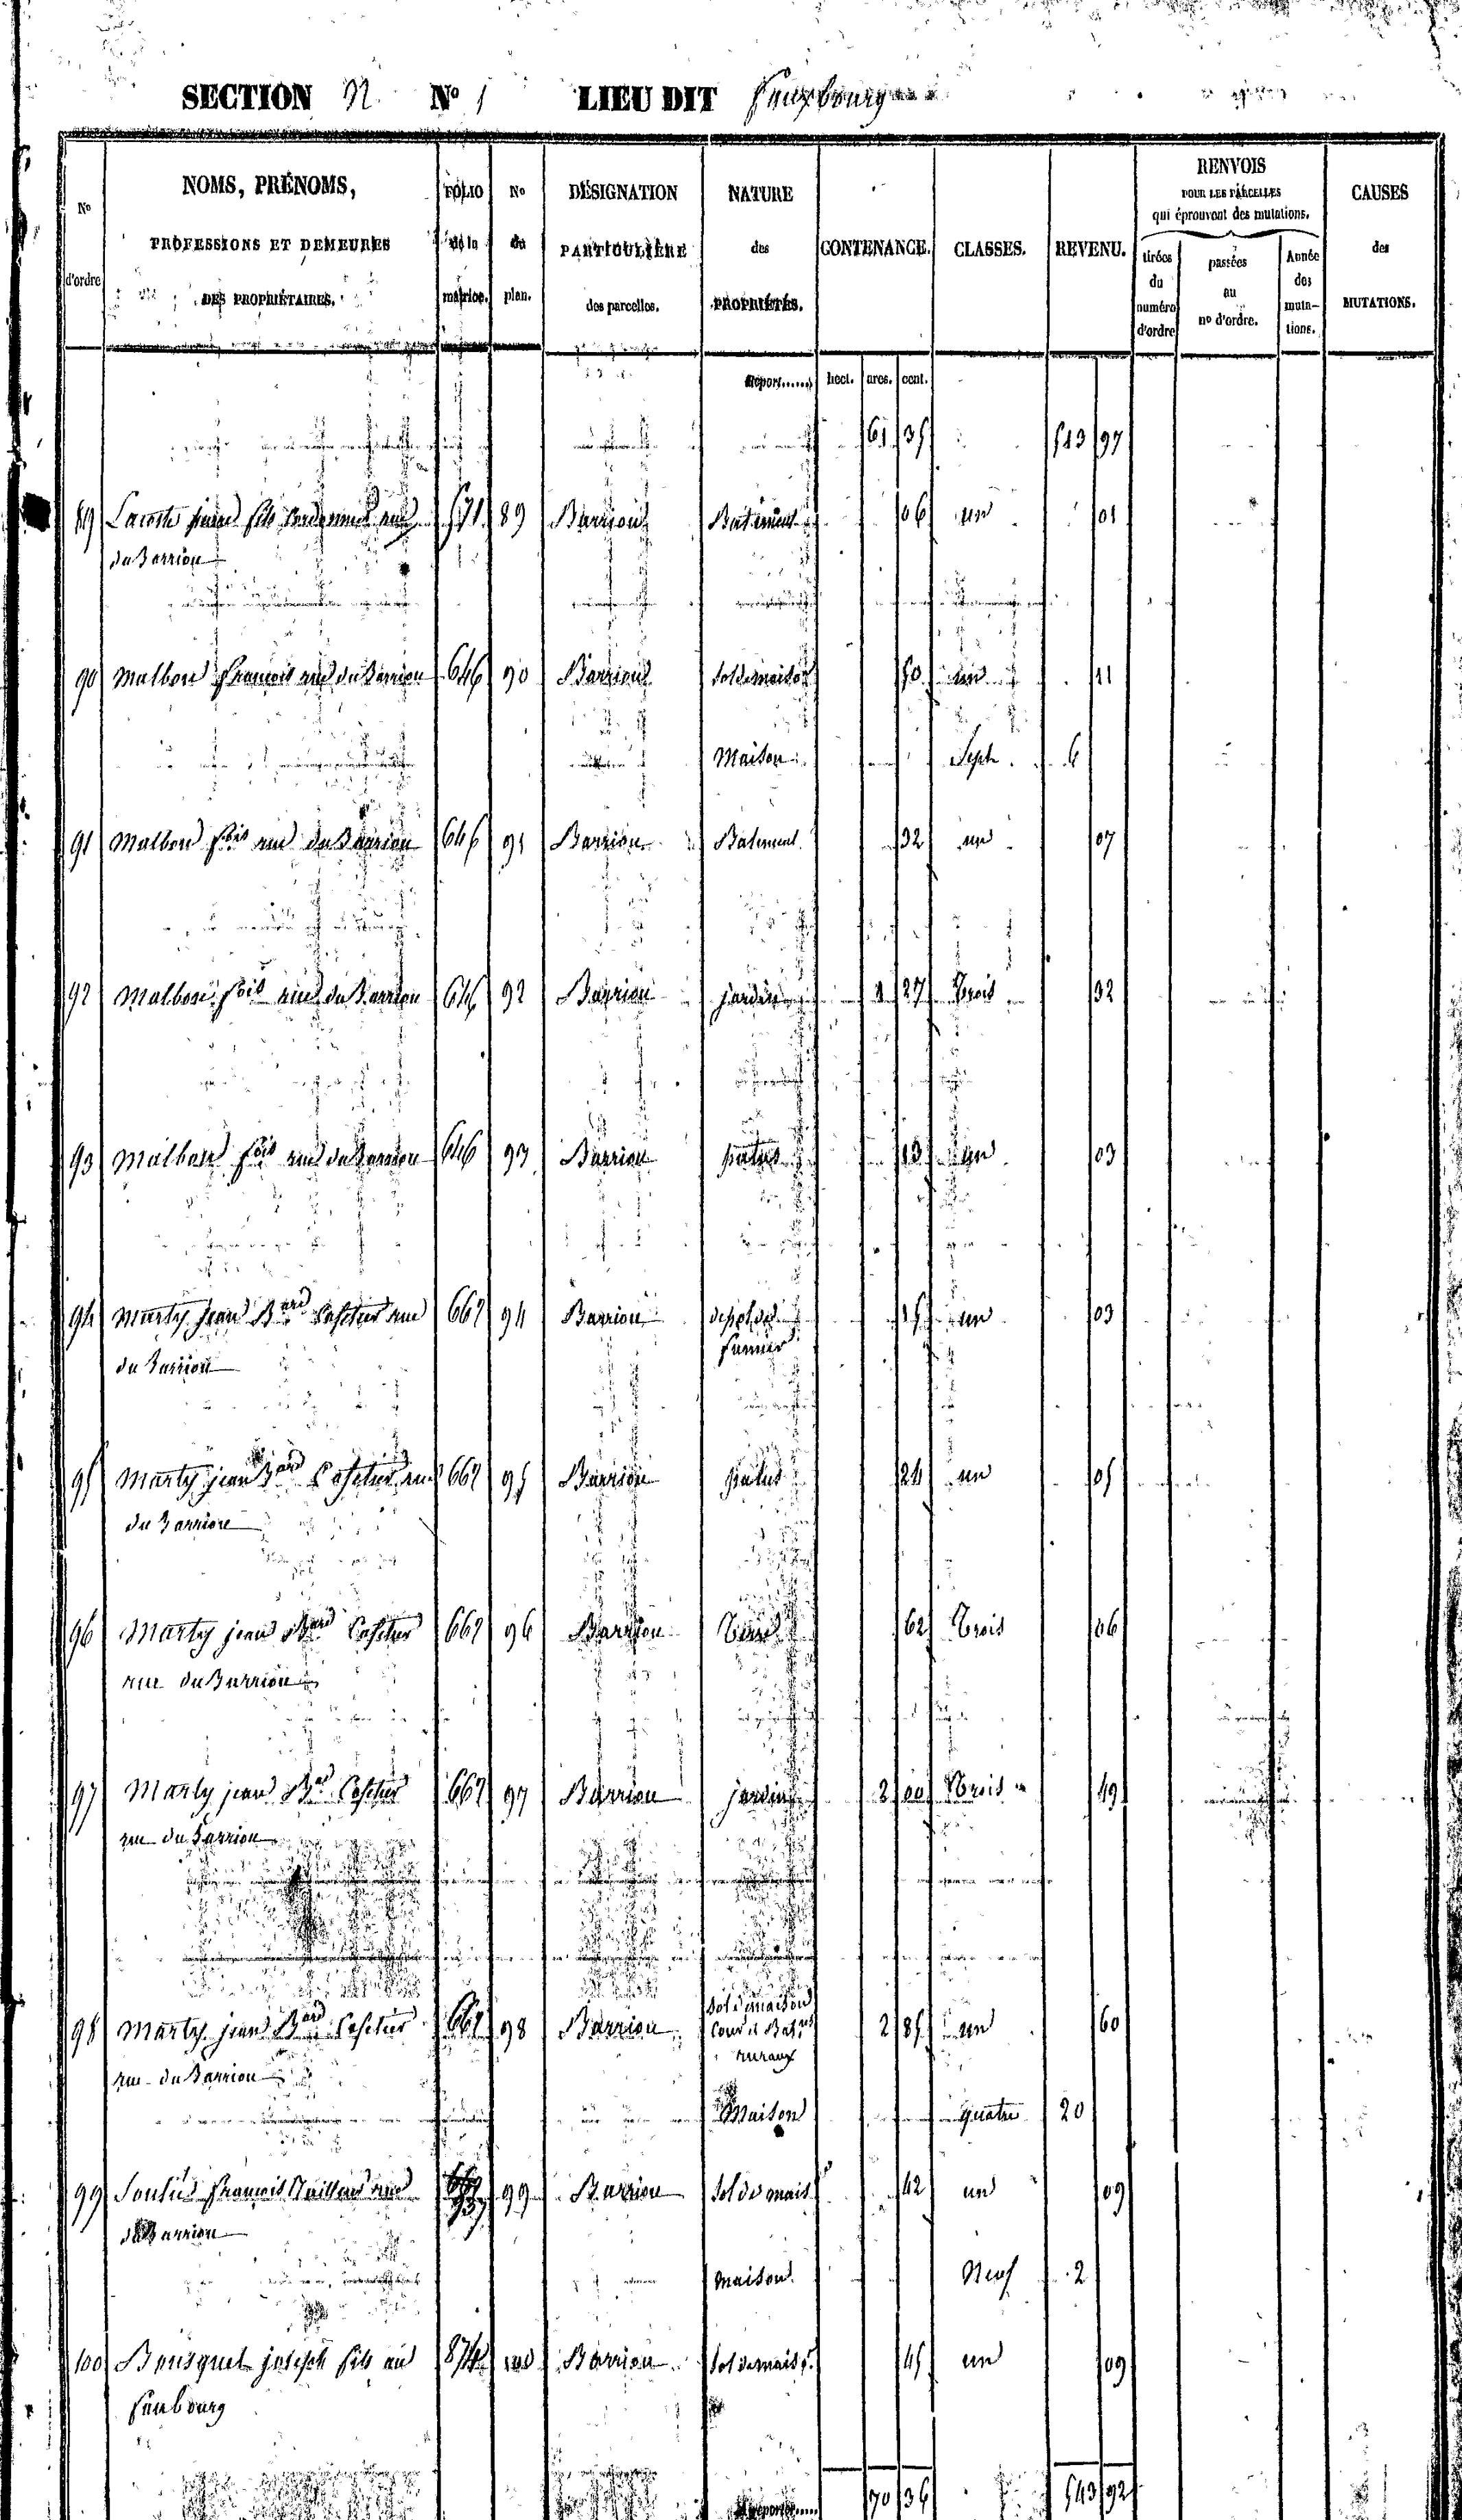 SECTION N No 1 LIEU DIT Fauxbourg
No d'ordre
NOMS, PRÉNOMS, PROFESSIONS ET DEMEURES DES PROPRIÉTAIRES.
FOLIO de la matrice.
No du plan.
DÉSIGNATION PARTICULIÈRE des parcelles.
NATURE des PROPRIÉTÉS.
CONTENANCE.
CLASSES.
REVENU.
RENVOIS POUR LES PARCELLES qui éprouvent des mutations.
tirées du numéro d'ordre
passées au no d'ordre.
Année des mutations.
CAUSES des MUTATIONS.
Report...... hect. ares. cent.
61 35 513 97
89 Lacoste fils rue 571 89 Barriou Batiment 06 un 01
du Barriou
90 Malbon francois rue du Barriou 646 90 Barriou Sol de maison 50 un 11
Maison Sept 6
91 Malbon fois rue du Barriou 646 91 Barriou Batiment 32 un 07
92 Malbon fois rue du Barriou 646 92 Barriou jardin 1 27 Trois 32
93 Malbon fois rue du Barriou 646 93 Barriou patus 13 un 03
94 Marty jean Bard rue 667 94 Barriou depot de 15 un 03
du Barriou fumier
95 Marty jean Bard rue 667 95 Barriou patus 24 un 05
du Barriou
96 Marty jean Bard 667 96 Barriou Terre 62 Trois 06
rue du Barriou
97 Marty jean Bd 667 97 Barriou jardin 2 00 Trois 49
rue du Barriou
98 Marty jean Bard 667 98 Barriou Sol de maison 2 85 un 60
rue du Barriou cour et Bats ruraux
Maison quatre 20
99 francois rue 99 Barriou Sol de mais. 42 un 09
du Barriou
Maison Neuf 2
100 Bousquet joseph fils au 874 100 Barriou Sol de mais. 45 un 09
faubourg
A reporter...... 70 36 543 92